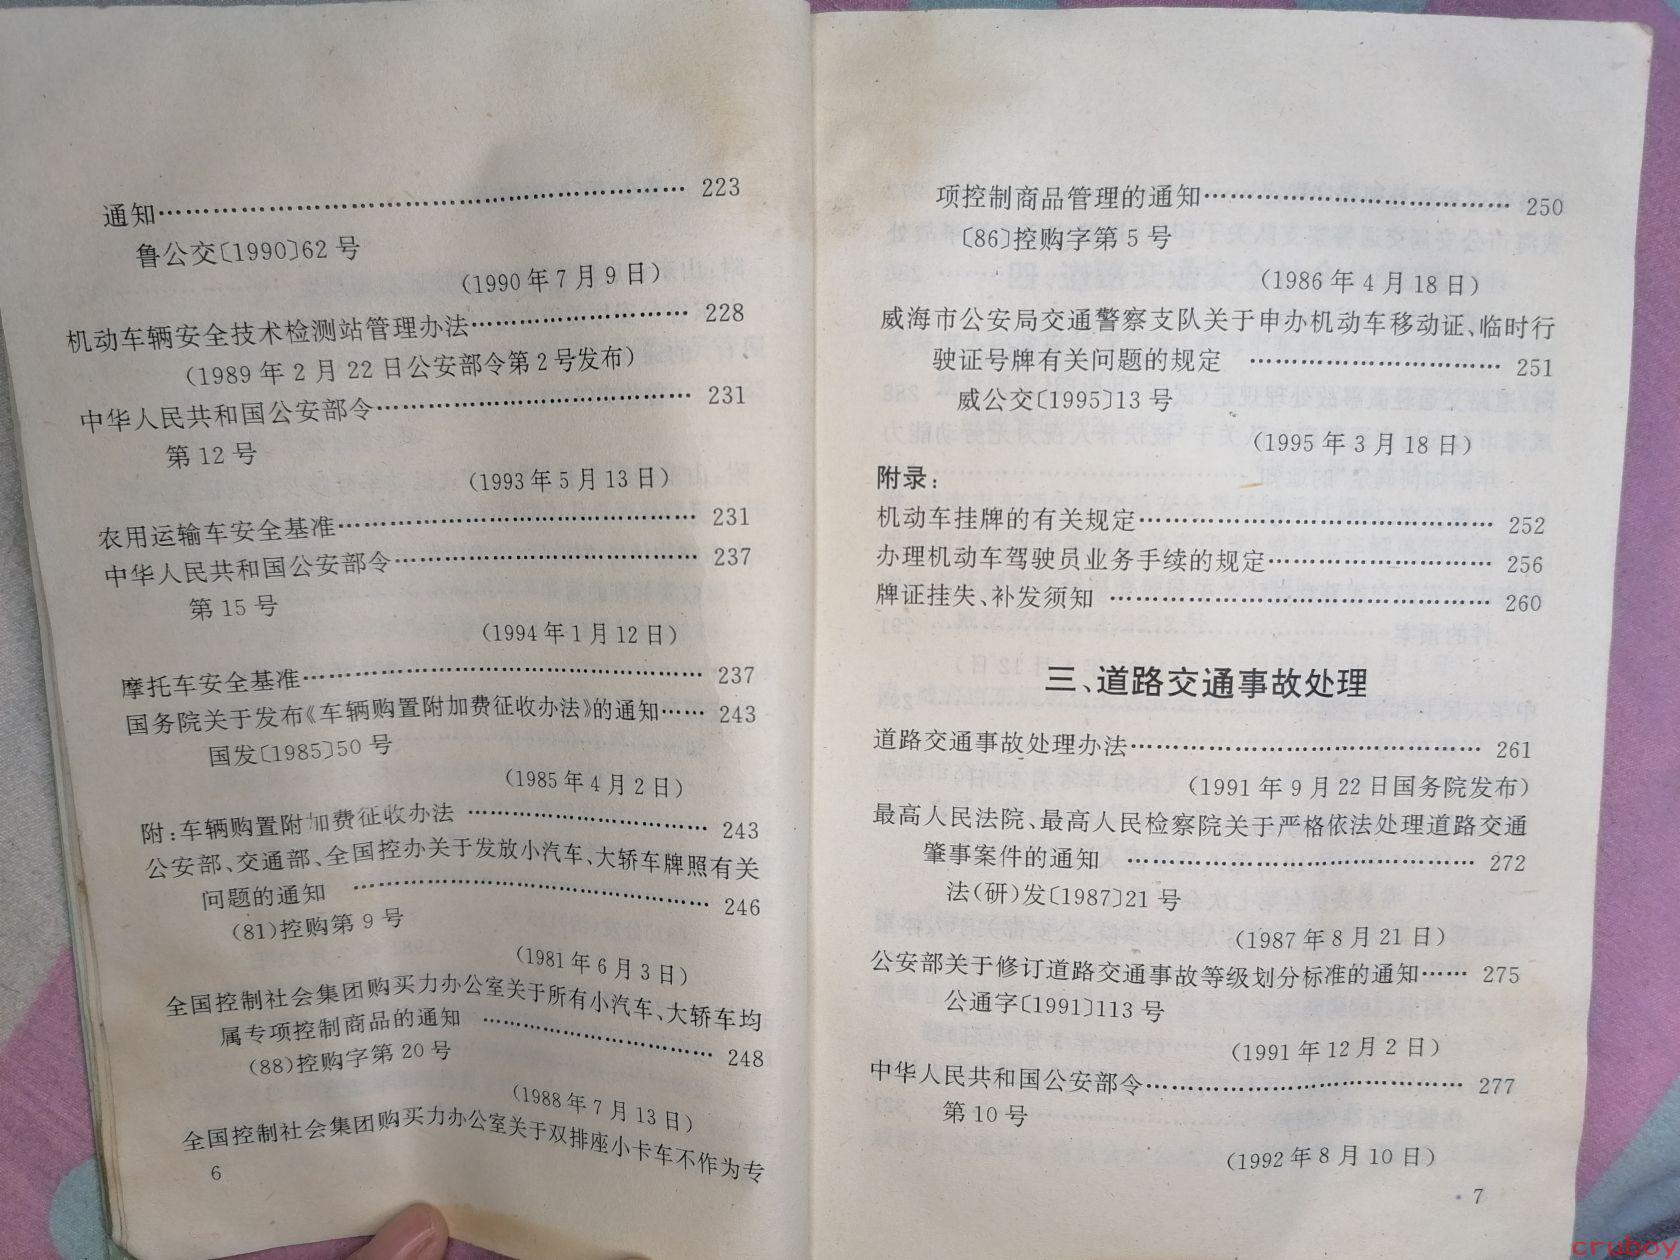 通知…………………………………………………… 223
鲁公交〔1990〕62 号
(1990 年 7 月 9 日)
机动车辆安全技术检测站管理办法……………………… 228
(1989 年 2 月 22 日公安部令第 2 号发布)
中华人民共和国公安部令……………………………… 231
第 12 号
(1993 年 5 月 13 日)
农用运输车安全基准…………………………………… 231
中华人民共和国公安部令……………………………… 237
第 15 号
(1994 年 1 月 12 日)
摩托车安全基准………………………………………… 237
国务院关于发布《车辆购置附加费征收办法》的通知…… 243
国发〔1985〕50 号
(1985 年 4 月 2 日)
附:车辆购置附加费征收办法 ………………………… 243
公安部、交通部、全国控办关于发放小汽车、大轿车牌照有关
问题的通知 …………………………………… 246
(81)控购第 9 号
(1981 年 6 月 3 日)
全国控制社会集团购买力办公室关于所有小汽车、大轿车均
属专项控制商品的通知 ……………………… 248
(88)控购字第 20 号
(1988 年 7 月 13 日)
全国控制社会集团购买力办公室关于双排座小卡车不作为专
6
项控制商品管理的通知……………………………… 250
〔86〕控购字第 5 号
(1986 年 4 月 18 日)
威海市公安局交通警察支队关于申办机动车移动证、临时行
驶证号牌有关问题的规定 ………………………… 251
威公交〔1995〕13 号
(1995 年 3 月 18 日)
附录:
机动车挂牌的有关规定…………………………………… 252
办理机动车驾驶员业务手续的规定……………………… 256
牌证挂失、补发须知 ……………………………………… 260
三、道路交通事故处理
道路交通事故处理办法…………………………………… 261
(1991 年 9 月 22 日国务院发布)
最高人民法院、最高人民检察院关于严格依法处理道路交通
肇事案件的通知 ………………………………… 272
法(研)发〔1987〕21 号
(1987 年 8 月 21 日)
公安部关于修订道路交通事故等级划分标准的通知…… 275
公通字〔1991〕113 号
(1991 年 12 月 2 日)
中华人民共和国公安部令……………………………… 277
第 10 号
(1992 年 8 月 10 日)
7
cruboy